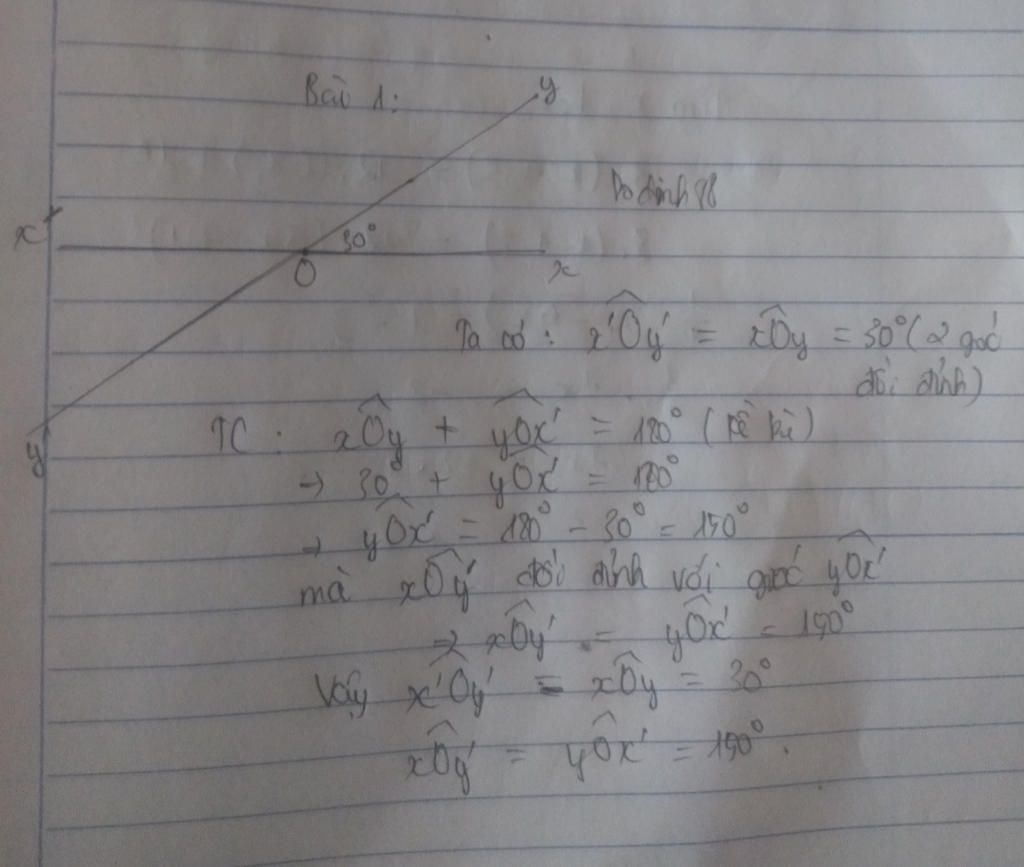 Bài 1:
y
x'
30°
O
x
y'
Ta có: x'Oy' = xOy = 30° (2 góc
đối đỉnh)
TC: xOy + yOx' = 180° (kề bù)
→ 30° + yOx' = 180°
→ yOx' = 180° - 30° = 150°
mà xOy' đối đỉnh với góc yOx'
→ xOy' = yOx' = 150°
Vậy x'Oy' = xOy = 30°
xOy' = yOx' = 150°.